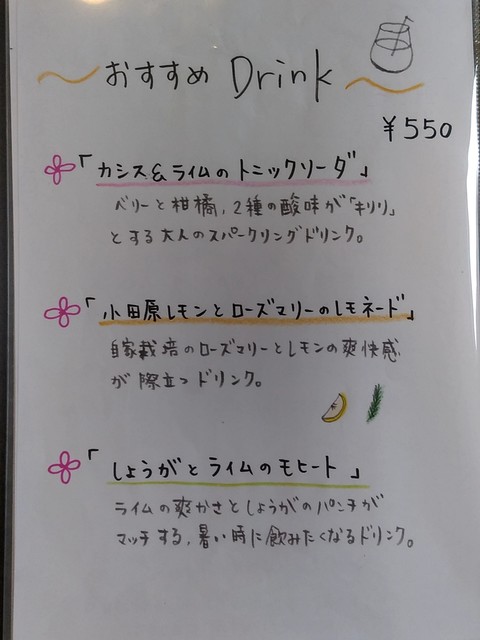 おすすめ Drink
¥550
「カシス&ライムのトニックソーダ」
ベリーと柑橘,2種の酸味が「キリリ」
とする大人のスパークリングドリンク。
「小田原レモンとローズマリーのレモネード」
自家栽培のローズマリーとレモンの爽快感
が際立つドリンク。
「しょうがとライムのモヒート」
ライムの爽かさとしょうがのパンチが
マッチする,暑い時に飲みたくなるドリンク。